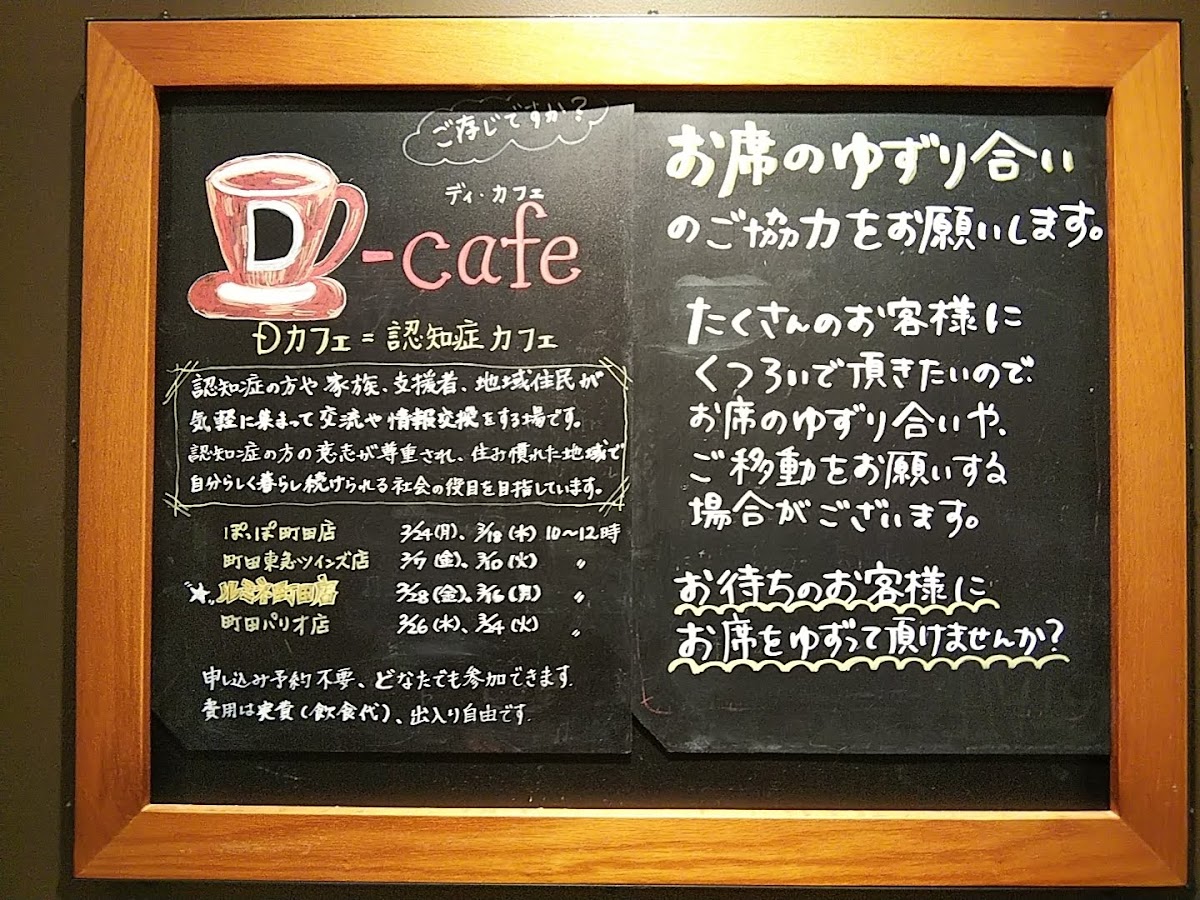 ご存じですか?
ディ・カフェ
D-cafe
Dカフェ=認知症カフェ
認知症の方や家族、支援者、地域住民が
気軽に集まって交流や情報交換をする場です。
認知症の方の意志が尊重され、住み慣れた地域で
自分らしく暮らし続けられる社会の役目を目指しています。
ぽっぽ町田店 3/18(水) 10〜12時
町田東急ツインズ店 3/10(火) 〃
☆ルミネ町田店 2/28(金)、3/16(月) 〃
町田パリオ店 3/24(火) 〃
申し込み予約不要、どなたでも参加できます.
費用は実費(飲食代)、出入り自由です.
お席のゆずり合い
のご協力をお願いします。
たくさんのお客様に
くつろいで頂きたいので、
お席のゆずり合いや、
ご移動をお願いする
場合がございます。
お待ちのお客様に
お席をゆずって頂けませんか?